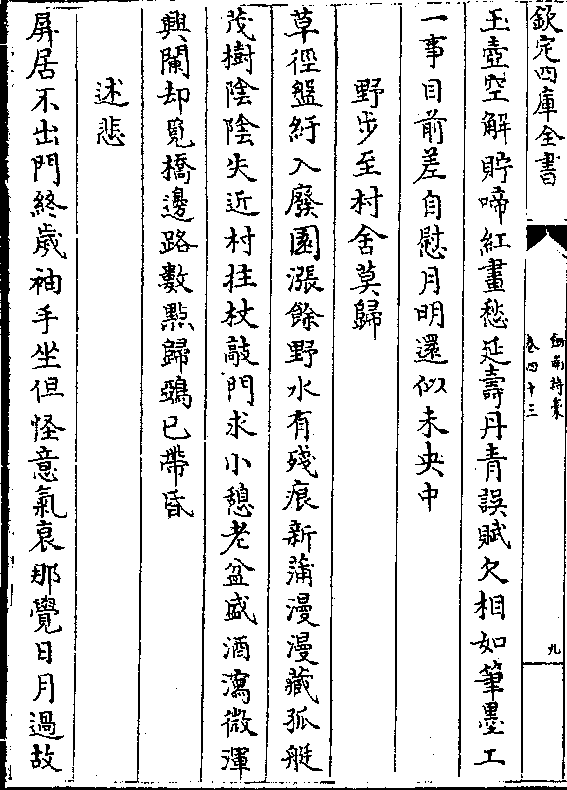 欽定四庫全書
劍南詩稾
卷四十三
九
玉壺空解貯啼紅畫愁延壽丹青誤賦欠相如筆墨工
一事目前差自慰月明還似未央中
野步至村舍莫歸
草徑盤紆入廢園漲餘野水有殘痕新蒲漫漫藏孤艇
茂樹隂隂失近村拄杖敲門求小憩老盆盛酒瀉微渾
興闌却覓橋邊路數㸃歸鴉已帶昏
述悲
屏居不出門終歲袖手坐但怪意氣衰那覺日月過故